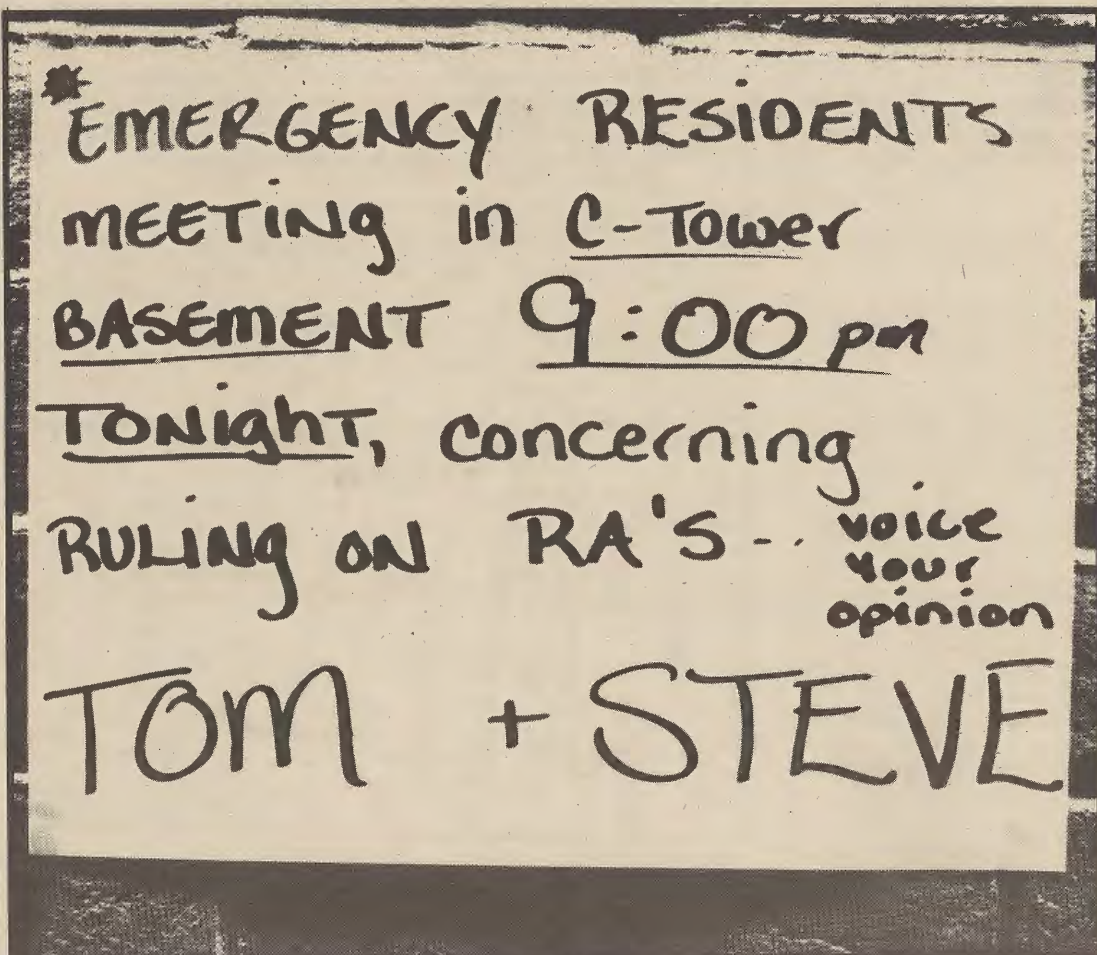 *EMERGENCY RESiDENTS
MEETiNg in C-Tower
BASEmENT 9:00 pm
TONighT, concerning
RULiNg oN RA'S-.. voice
your
opinion
TOM + STEVE